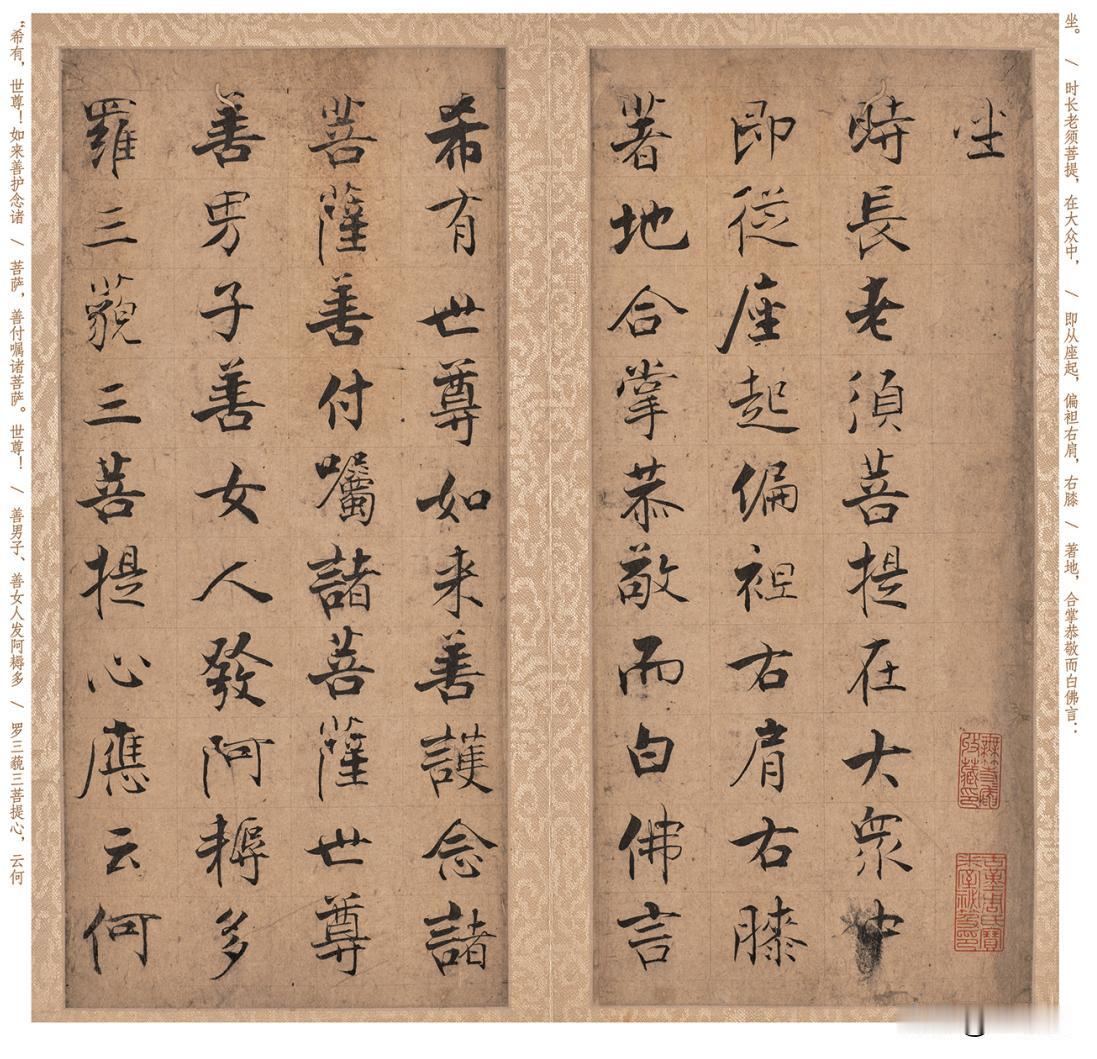 坐。 / 时长老须菩提，在大众中， / 即从座起，偏袒右肩，右膝 / 著地，合掌恭敬而白佛言：
坐
時長老須菩提在大衆中
即從座起偏袒右肩右膝
著地合掌恭敬而白佛言
希有世尊如来善護念諸
菩薩善付囑諸菩薩世尊
善男子善女人發阿耨多
羅三藐三菩提心應云何
“希有，世尊！如来善护念诸 / 菩萨，善付嘱诸菩萨。世尊！ / 善男子、善女人发阿耨多 / 罗三藐三菩提心，云何